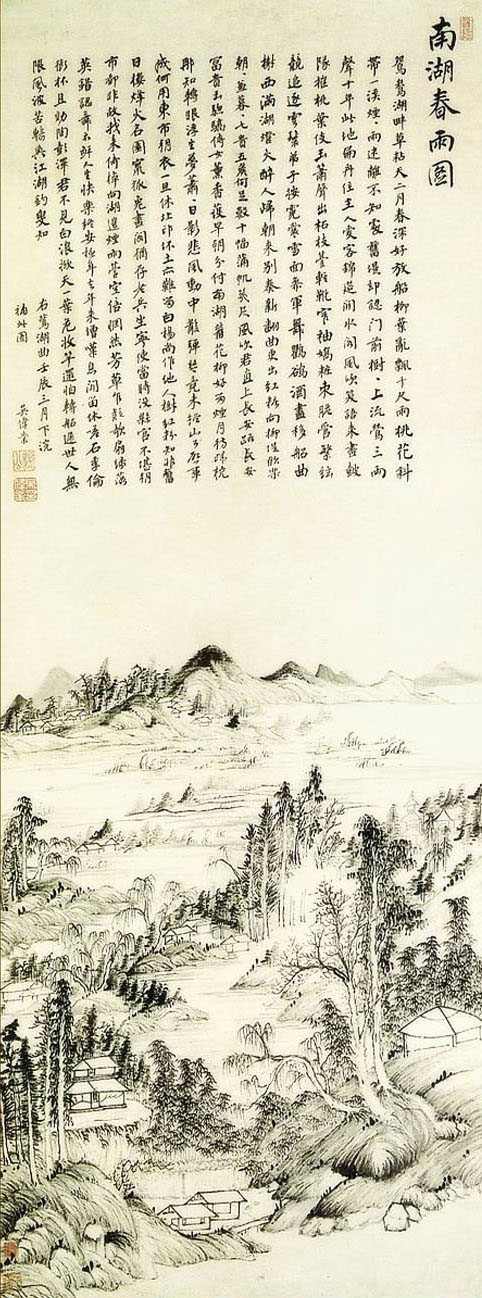 南湖春雨圖
鴛鴦湖畔草粘天二月春深好放船柳葉亂飄千尺雨桃花斜
帶一溪煙〻雨迷離不知處舊堤却認門前樹〻上流鶯三兩
聲十年此地扁舟住主人愛客錦筵開水閣風吹笑語來畫鼓
隊催桃葉伎玉簫聲出柘枝臺輕靴窄袖嬌粧束脆管繁絃
競追逐雲鬟子弟按霓裳雪面參軍舞鸜鵒酒盡移船曲
榭西滿湖燈火醉人歸朝來別奏新翻曲更出紅粧向柳堤歡樂
朝〻兼暮〻七貴五侯何足數十幅蒲帆幾尺風吹君直上長安路長安
富貴玉驄驕侍女薰香護早朝分付南湖舊花柳好留煙月待歸橈
那知轉眼浮生夢蕭〻日影悲風動中散彈琴竟未終山公啟事
成何用東市朝衣一旦休北邙坏土亦難留白楊尚作他人樹紅粉知非舊
日樓烽火名園竄狐兔畫閣猶存老兵坐寧使當時沒縣官不堪朝
市都非故我來倚棹向湖邊煙雨臺空倍惘然芳草乍疑歌扇綠落
英錯認舞衣鮮人生快樂終安極年去年來堪嘆息聞笛休嗟石季倫
銜杯且効陶彭澤君不見白浪掀天一葉危收竿還怕轉船遲世人無
限風波苦輸與江湖釣叟知
右鴛湖曲壬辰三月下浣
補此圖
吳偉業